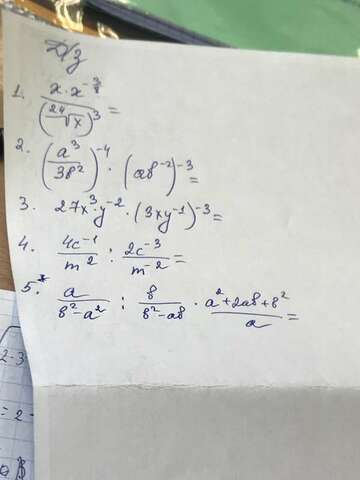 Д/з
1. \frac{x \cdot x^{-\frac{3}{8}}}{(\sqrt[24]{x})^3} =
2. (\frac{a^3}{3b^2})^{-4} \cdot (ab^{-2})^{-3} =
3. 27x^3 \cdot y^{-2} \cdot (3xy^{-1})^{-3} =
4. \frac{4c^{-1}}{m^2} : \frac{2c^{-3}}{m^{-2}} =
5.* \frac{a}{b^2-a^2} : \frac{b}{b^2-ab} \cdot \frac{a^2+2ab+b^2}{a} =
2-3
= 2 -